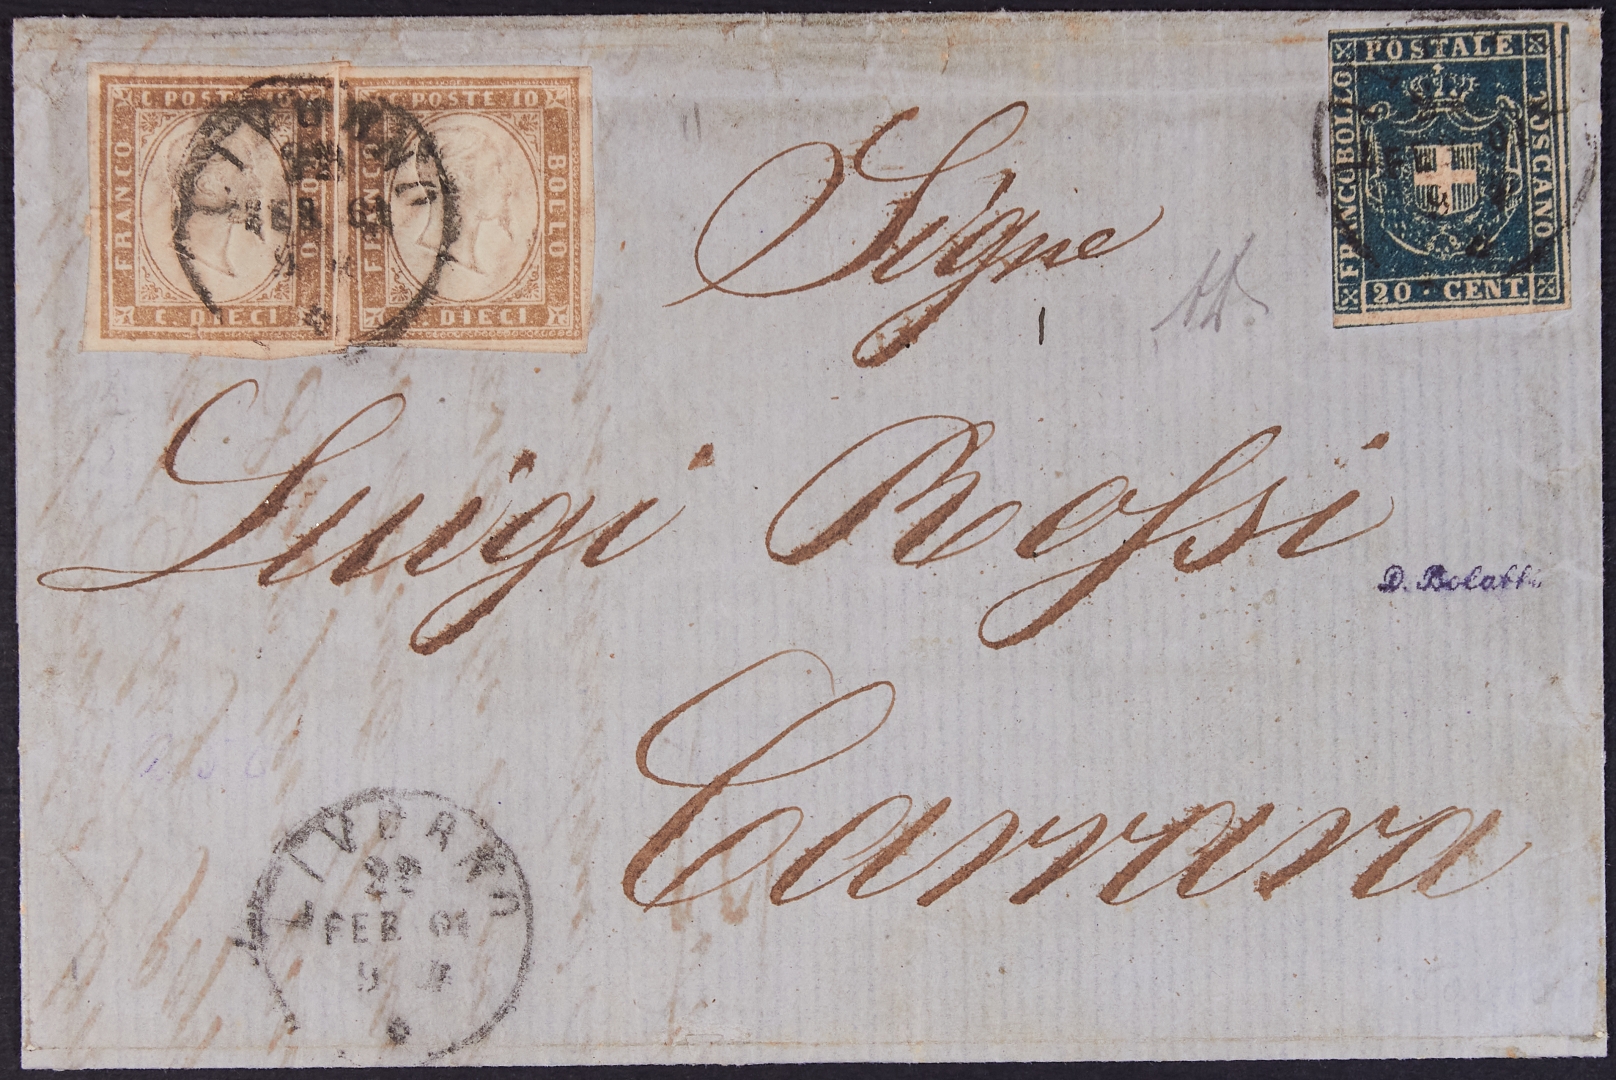 C. POSTE 10
FRANCO
BOLLO
C. DIECI
C. POSTE 10
FRANCO
BOLLO
C. DIECI
LIVORNO
22
FEB 61
9
FRANCOBOLLO
POSTALE
TOSCANO
20 · CENT.
Sigre
Luigi Rossi
D. Bolaffi
Carrara
LIVORNO
22
FEB 61
9